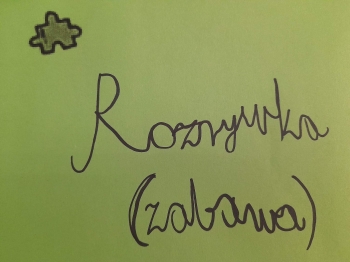 Rozrywka
(zabawa)